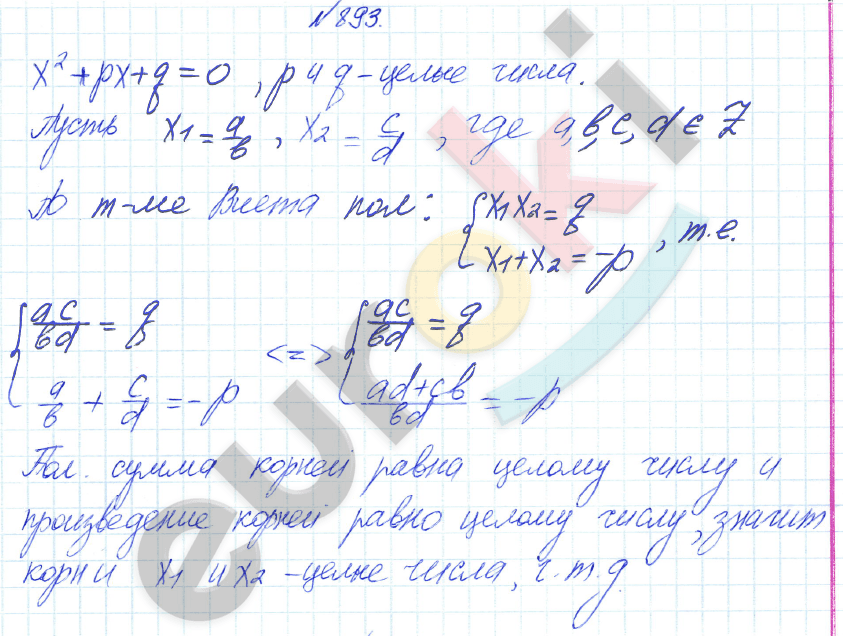 №893.
x² + px + q = 0, p и q – целые числа.
Пусть x₁ = a/b, x₂ = c/d, где a, b, c, d ∈ Z
По т-ме Виета пол: { x₁x₂ = q
x₁ + x₂ = –p, т.е.
{ ac/bd = q <=> { ac/bd = q
a/b + c/d = –p (ad+cb)/bd = –p
Пол. сумма корней равна целому числу и
произведение корней равно целому числу, значит
корни x₁ и x₂ – целые числа, ч.т.д.
euroki